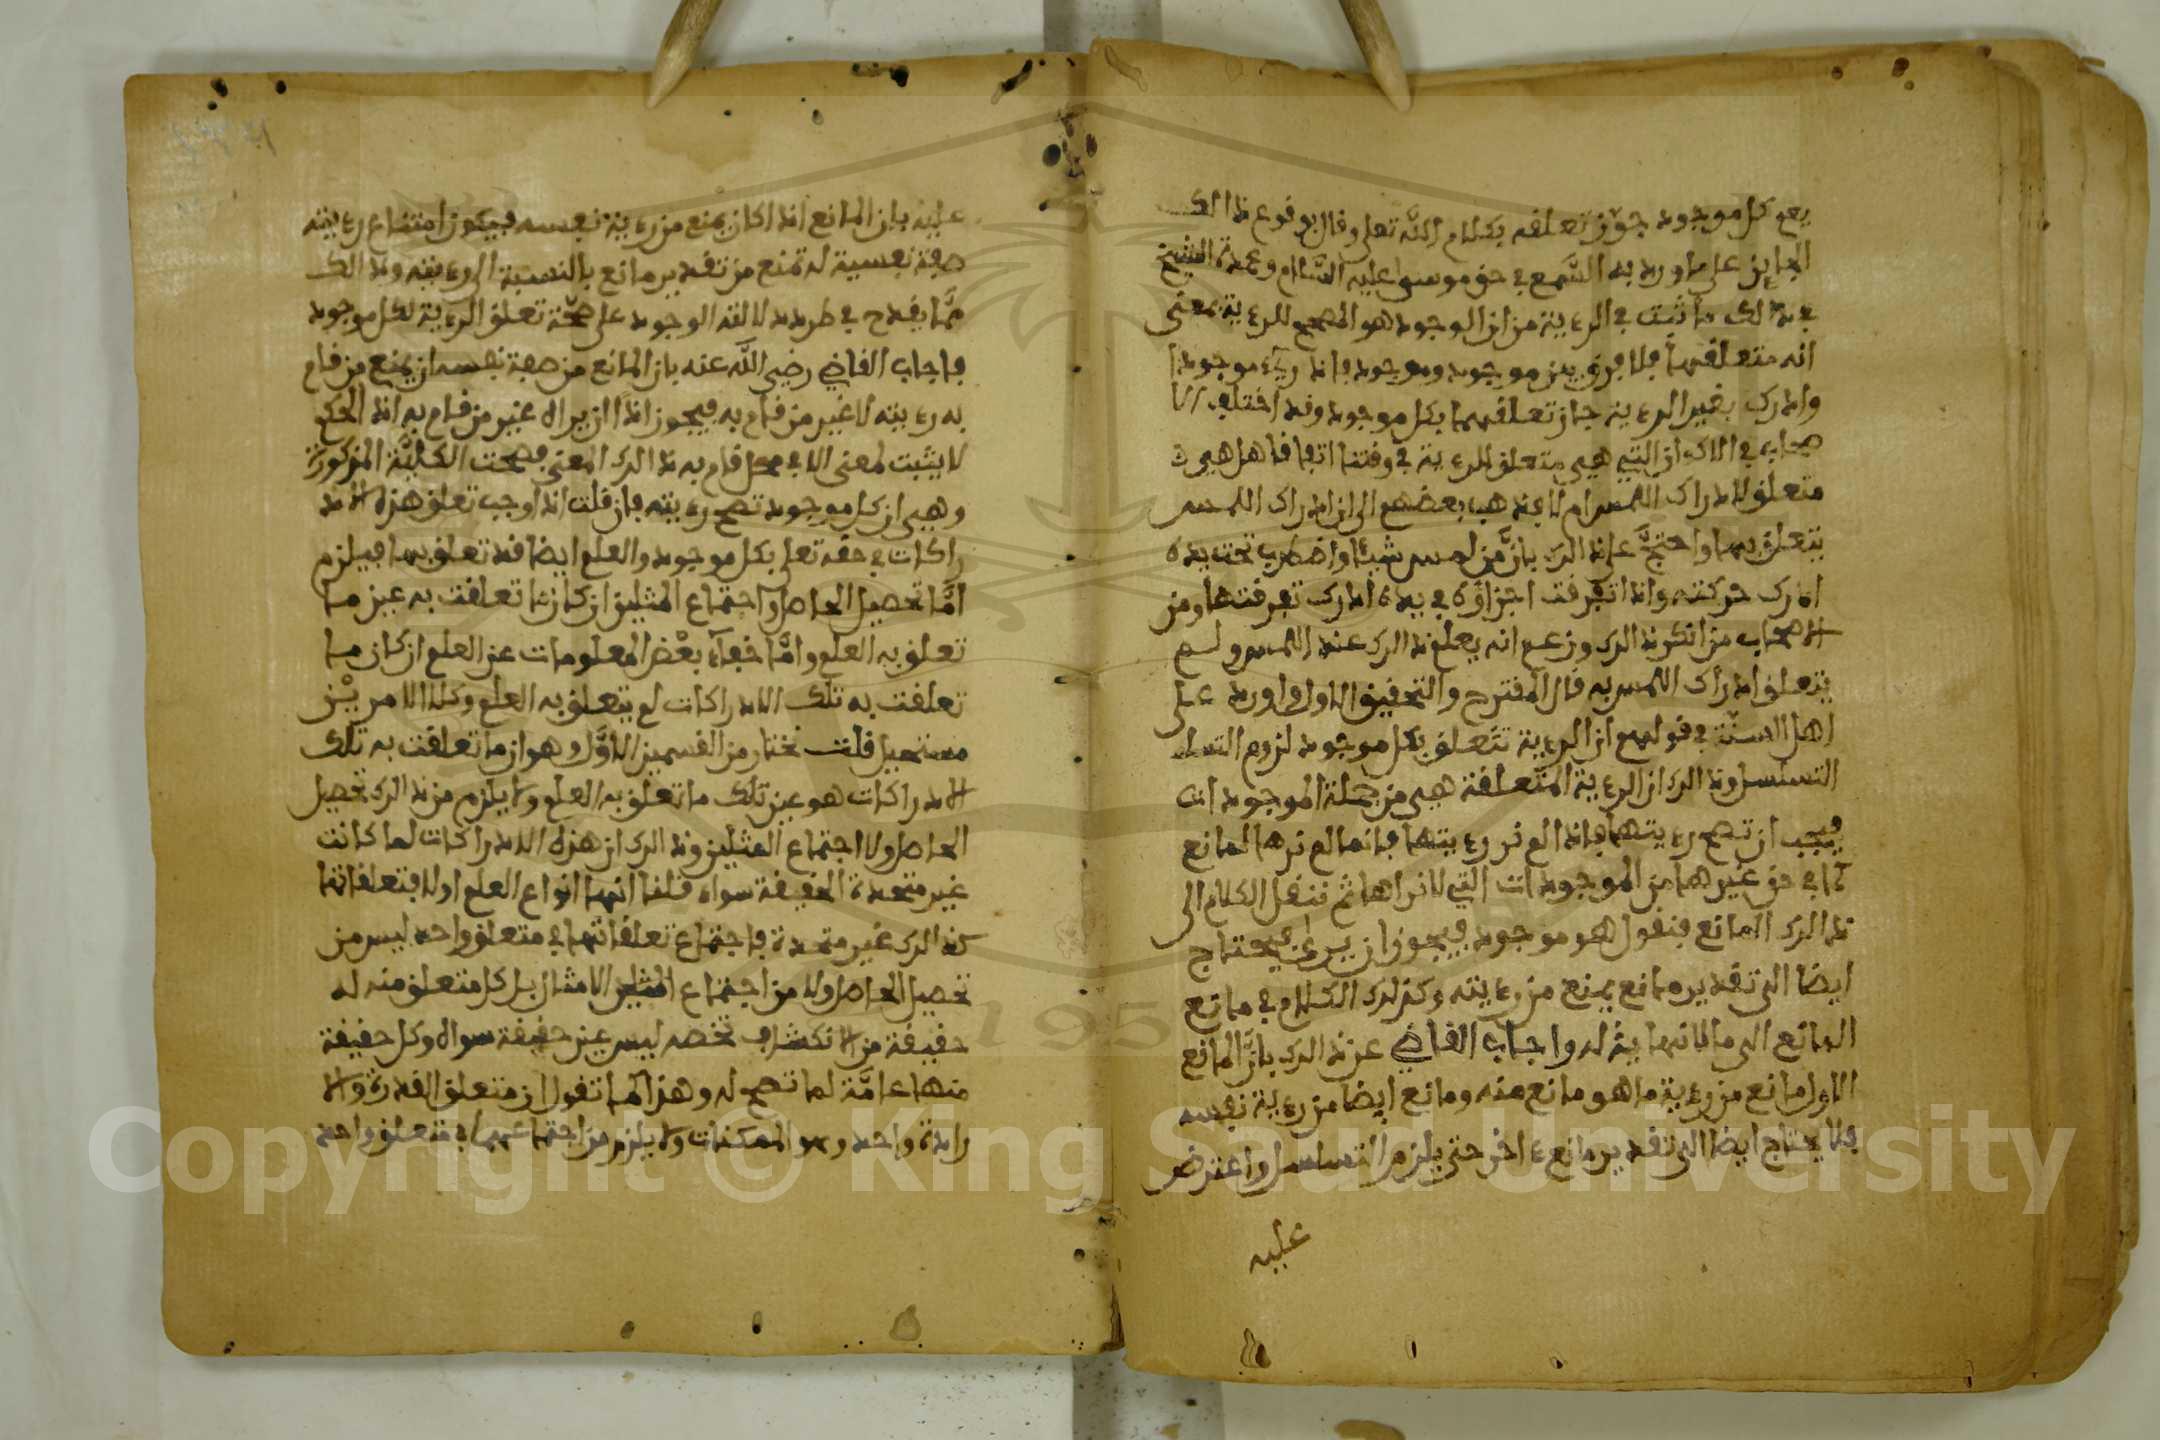 يعم كل موجود جوّز تعلقه بكلام اللّه تعلى وقال بوقوع ذالك
الجايز على ما ورد به السَّمع في حق موسى عليه السَّلام وعمدة الشيخ
في ذالك ما ثبت في الرءية من ان الوجود هو المصحح للرءية بمعنى
انه متعلقهما فلا فرق بين موجود وموجود فاذا ريء موجودا
وادرك بغير الرءية جاز تعلقهما بكل موجود وقد اختلف الا
صحاب في الاكوان التي هي متعلق للرءية في وقتنا اتفاقا هل هي
متعلق لادراك اللمس ام لا فذهب بعضهم الى ان ادراك اللمس
يتعلق بها واحتجَّ على ذالك بانَّ من لمس شيئا واضطرب تحت يده
ادرك حركته واذا تفرقت اجزاؤه في يده ادرك تفرقتها ومن
الاصحاب من انكر ذالك وزعم انه يعلم ذالك عند اللمس ولم
يتعلق ادراك اللمس به قال المقترح والتحقيق الاول واورد على
اهل السنّة في قولهم ان الرءية تتعلق بكل موجود لزوم التسلـ
التسلسل وذالك ان الرءية المتعلقة هي من جملة الموجودات
فيجب ان تصح رءيتها فاذا لم نر رءيتها فانما لم نرها لمانع
كما في حق غيرها من الموجودات التي لا نراها ثم ننقل الكلام الى
ذالك المانع فنقول هو موجود فيجوز ان يرى فيحتاج
ايضا الى تقدير مانع يمنع من رءيته وكذلك الكلام في مانع
المانع الى ما لا نهاية له واجاب القاضي عن ذالك بانَّ المانع
الاول مانع من رءية ما هو مانع منه ومانع ايضا من رءية نفسه
فلا يحتاج ايضا الى تقدير مانع ءاخر حتى يلزم التسلسل واعترض
عليه
عليه بان المانع اذا كان يمنع من رءية نفسه فيكون امتناع رءيته
صفة نفسية له تمنع من تقدير مانع بالنسبة الى رءيته وذالك
ممَّا يقدح في طرد دلالة الوجود على صحّة تعلق الرءية لكل موجود
فاجاب القاضي رضي اللّه عنه بان المانع من صفة نفسه ان يمنع من قام
به رءيته لا غير من قام به فيجوز اذًا ان يراه غير من قام به اذ الحكم
لا يثبت لمعنى الا في محل قام به ذالك المعنى فصحت الكليَّة المذكورة
وهي ان كل موجود تصح رءيته فان قلت اذا وجب تعلق هذه الاد
راكات في حقه تعلى بكل موجود والعلم ايضا قد تعلق بها فيلزم
امَّا تحصيل الحاصل واجتماع المثلين ان كان ما تعلقت به عين ما
تعلق به العلم وامَّا خفآء بعْض المعلومات عن العلم ان كان ما
تعلقت به تلك الادراكات لم يتعلق به العلم وكلا الامريْن
مستحيل قلت نختار من القسمين الاوَّل وهو ان ما تعلقت به تلك
الادراكات هو عين تلك ما تعلق به العلم ولا يلزم من ذالك تحصيل
الحاصل ولا اجتماع المثلين وذالك ان هذه الادراكات لما كانت
غير متحدة الحقيقة سواء قلنا انها انواع العلم او لا فتعلقاتها
كذالك غير متحدة فاجتماع تعلقاتها في متعلق واحد ليس من
تحصيل الحاصل ولا من اجتماع المثلين الامثال بل كل متعلق منه له
حقيقة من الانكشاف تخصه ليس عين حقيقة سواه وكل حقيقة
منها عامَّة لما تصح له وهذا كما تقول ان متعلق القدرة والا
رادة واحد وهو الممكنات ولا يلزم من اجتماعهما في متعلق واحد